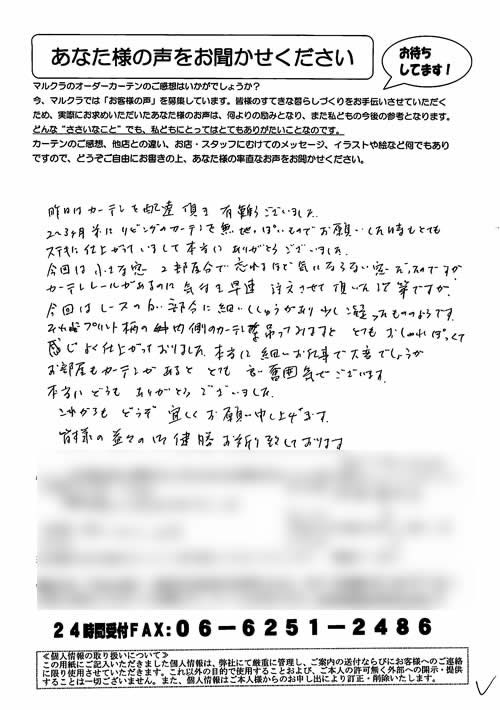 あなた様の声をお聞かせください
お待ち
してます!
マルクラのオーダーカーテンのご感想はいかがでしょうか?
今、マルクラでは「お客様の声」を募集しています。皆様のすてきな暮らしづくりをお手伝いさせていただく
ため、実際にお求めいただいたあなた様のお声は、何よりの励みとなり、また私どもの今後の参考となります。
どんな“ささいなこと”でも、私どもにとってはとてもありがたいことなのです。
カーテンのご感想、他店との違い、お店・スタッフにむけてのメッセージ、イラストや絵など何でもあり
ですので、どうぞご自由にお書きの上、あなた様の率直なお声をお聞かせください。
昨日はカーテンを配達頂き有難うございました。
2〜3ヶ月前にリビングのカーテンを無地っぽいものでお願いした時もとても
ステキに仕上がっていまして本当にありがとうございました。
今回は小さな窓 2部屋分で忘れるほど気にならない窓だったのですが
カーテンレールがあるのに気付き早速 注文させて頂いた 筈ですが、
今回はレースの白い部分に細い ししゅうがあり少し 経ったもののようです。
プリント柄の 内側のカーテン 吊ってみますと とても おしゃれっぽくて
感じよく仕上がっておりました。本当に細いお仕事で大変でしょうが
お部屋もカーテンがあると とても 良い雰囲気でございます。
本当にどうも ありがとうございました。
これからも どうぞ 宜しくお願い申し上げます。
皆様の益々の御健勝お祈り致しております
24時間受付FAX:06-6251-2486
≪個人情報の取り扱いについて≫
この用紙にご記入いただきました個人情報は、弊社にて厳重に管理し、ご案内の送付ならびにお客様へのご連絡
に限り使用させていただきます。これ以外の目的で使用することおよび、ご本人の許可無く外部への開示・提供
することは一切ございません。また、個人情報はご本人様からのお申し出により訂正・削除いたします。